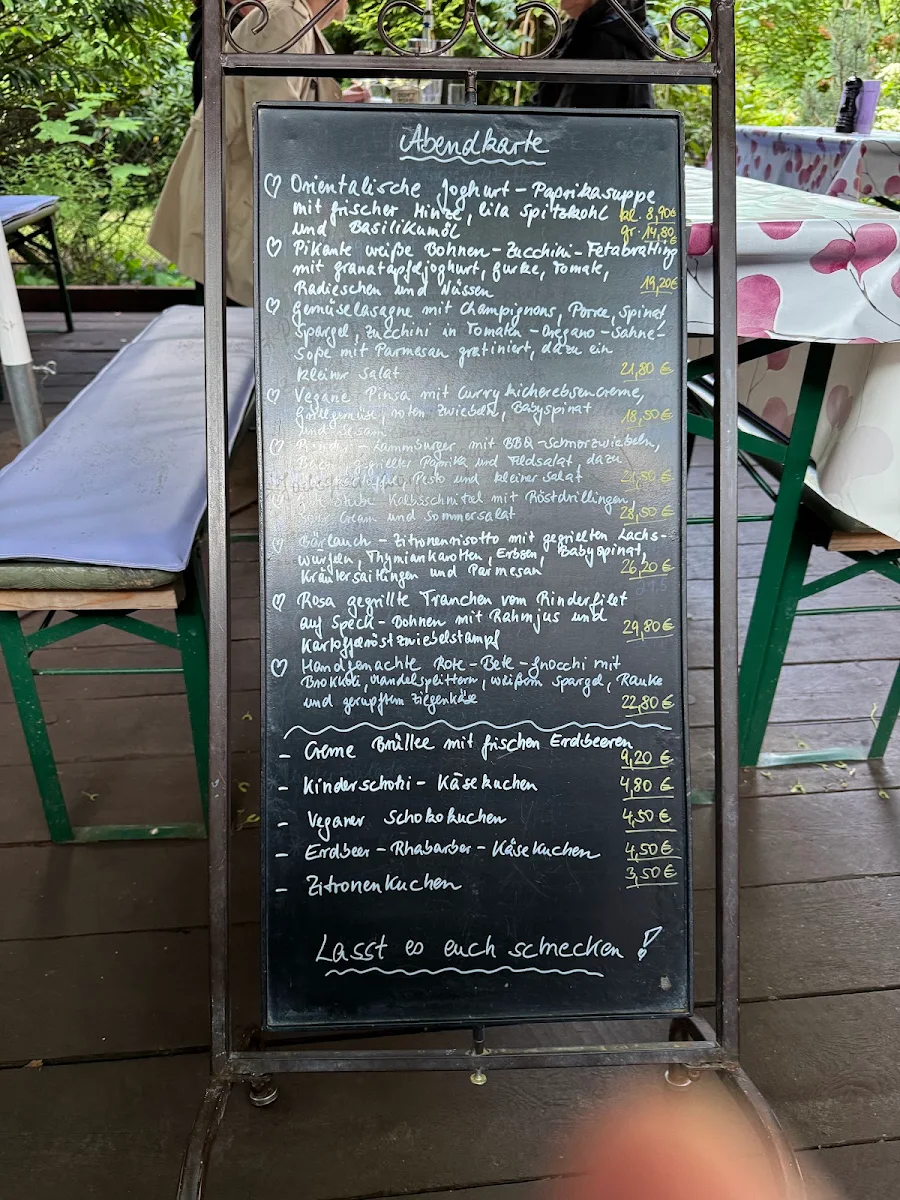 Abendkarte
Orientalische Joghurt - Paprikasuppe
mit frischer Minze, lila Spitzkohl kl. 8,90€
und Basilikumöl gr. 14,80€
Pikante weiße Bohnen - Zucchini - Fetabratling
mit granatapfeljoghurt, Gurke, Tomate,
Radieschen und Nüssen 19,20€
Gemüselasagne mit Champignons, Porree, Spinat,
Spargel, Zucchini in Tomaten - Oregano - Sahne-
Soße mit Parmesan gratiniert, dazu ein
kleiner Salat 21,80 €
Vegane Pinsa mit Curry kichererbsencreme,
Grillgemüse, roten Zwiebeln, Babyspinat 18,50€
und Sesam
Lammburger mit BBQ - Schmorzwiebeln,
gegrillter Paprika und Feldsalat dazu
Pesto und kleiner Salat 21,50€
Kalbsschnitzel mit Röstdrillingen,
Cream und Sommersalat 28,50€
Bärlauch - Zitronenrisotto mit gegrillten Lachs-
würfeln, Thymiankarotten, Erbsen, Babyspinat,
Kräutersaitlingen und Parmesan 26,20€
Rosa gegrillte Tranchen vom Rinderfilet
auf Speck - Bohnen mit Rahmjus und
Kartoffelröstzwiebelstampf 29,80€
Handgemachte Rote - Bete - gnocchi mit
Brokkoli, Mandelsplittern, weißem Spargel, Rauke
und gerupftem Ziegenkäse 22,80 €
- Creme Brûllee mit frischen Erdbeeren 9,20 €
- Kinderschoki - Käsekuchen 4,80 €
- Veganer Schokokuchen 4,50€
- Erdbeer - Rhabarber - Käsekuchen 4,50€
- Zitronenkuchen 3,50€
Lasst es euch schmecken!